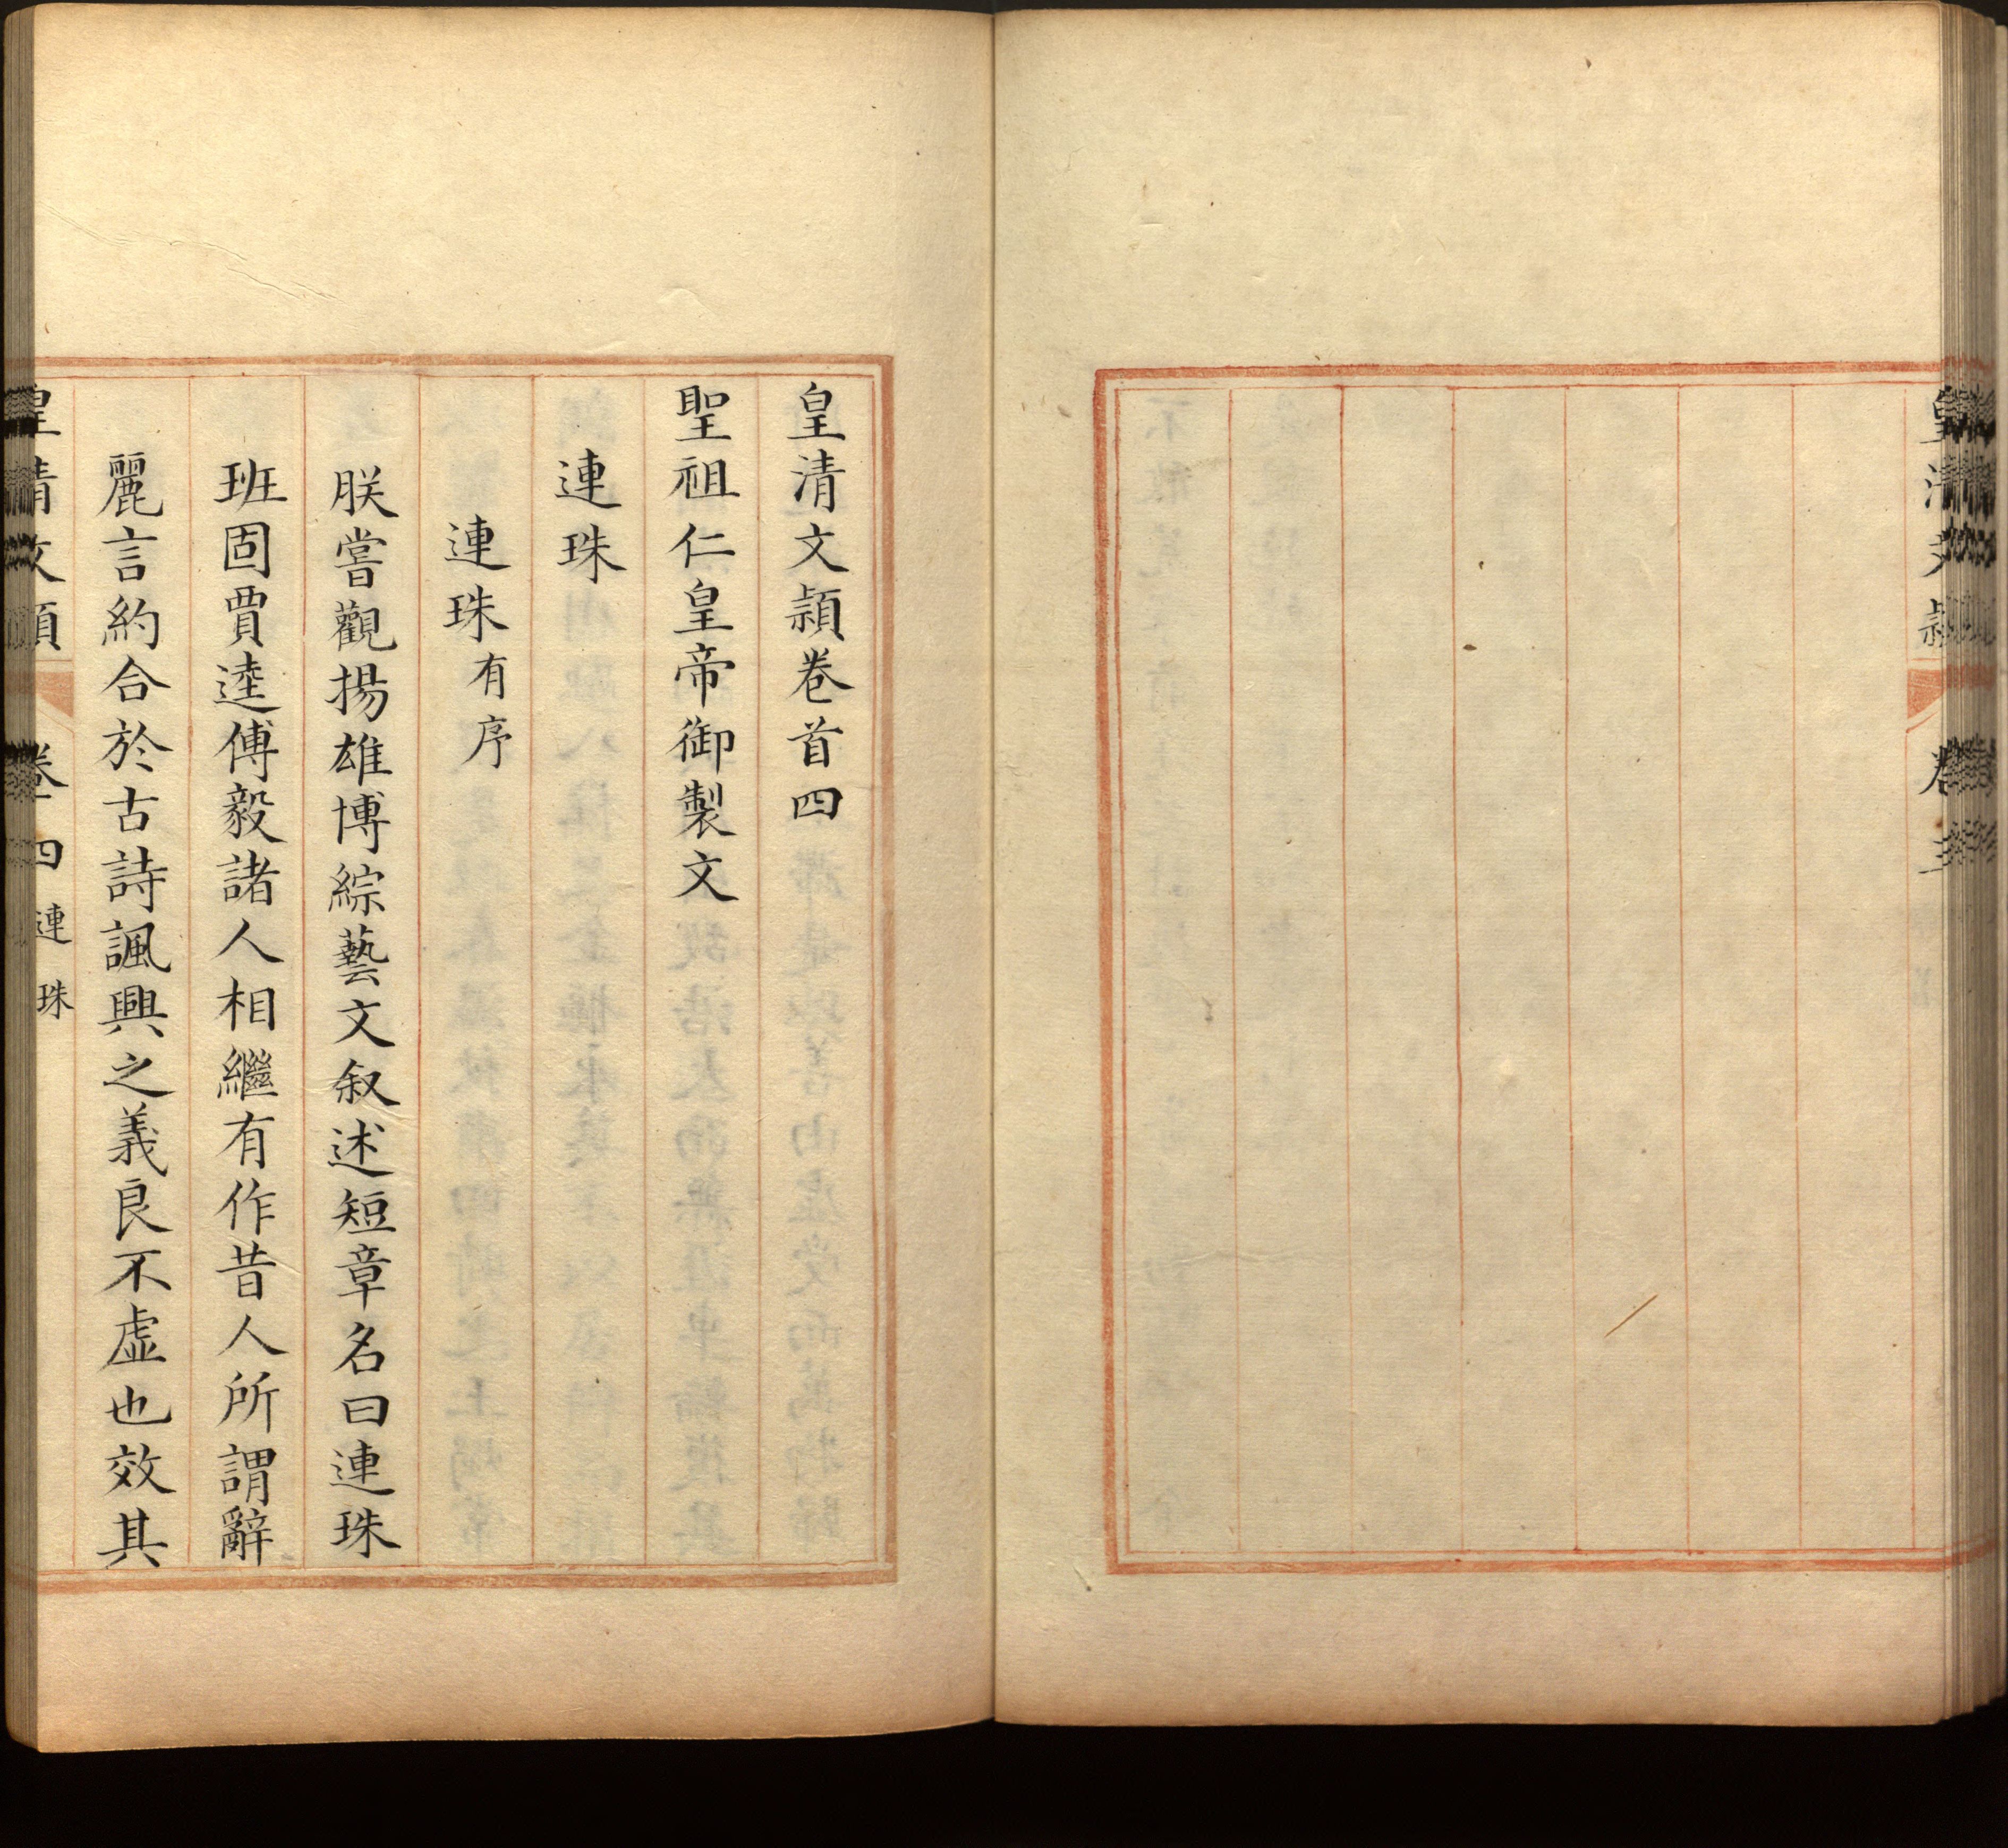 皇清文穎 卷 三
皇清文穎卷首四
聖祖仁皇帝御製文
連珠
連珠有序
朕嘗觀揚雄博綜藝文叙述短章名曰連珠
班固賈逵傅毅諸人相繼有作昔人所謂辭
麗言約合於古詩諷興之義良不虛也效其
皇清文穎 卷首四 連珠